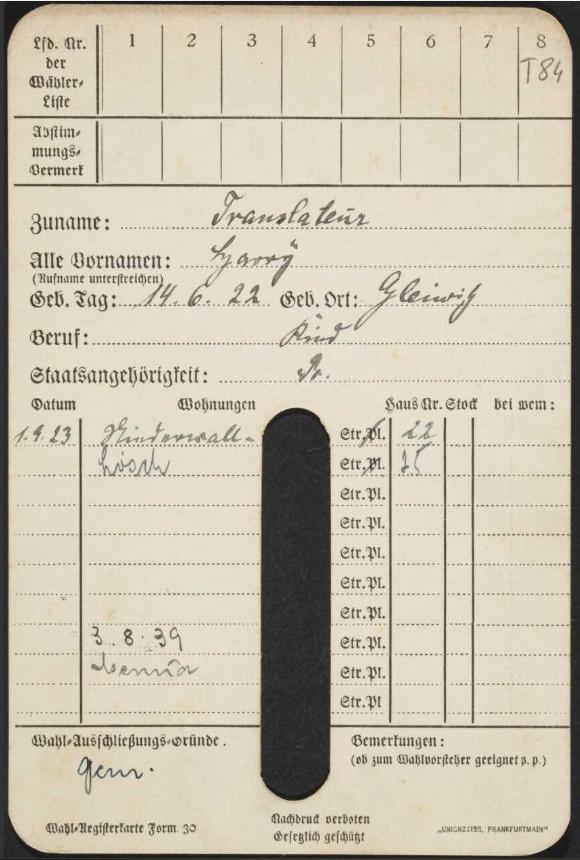 Lfd. Nr. der Wähler-Liste 1 2 3 4 5 6 7 8
T84
Abstim-mungs-Vermerk
Zuname: Translateur
Alle Vornamen: Harry
(Rufname unterstreichen)
Geb. Tag: 14. 6. 22 Geb. Ort: Gleiwitz
Beruf: Kind
Staatsangehörigkeit: Pr.
Datum Wohnungen Haus Nr. Stock bei wem:
1.9.23 Str. Pl. 22
Lösch Str. Pl. 15
Str. Pl.
Str. Pl.
Str. Pl.
Str. Pl.
Str. Pl.
3. 8. 39 Str. Pl.
Str. Pl.
Str. Pl
Wahl-Ausschließungs-Gründe. Bemerkungen:
(ob zum Wahlvorsteher geeignet p. p.)
Nachdruck verboten
Wahl-Registerkarte Form. 30 Gesetzlich geschützt „UNIONZEISS, FRANKFURTMAIN“